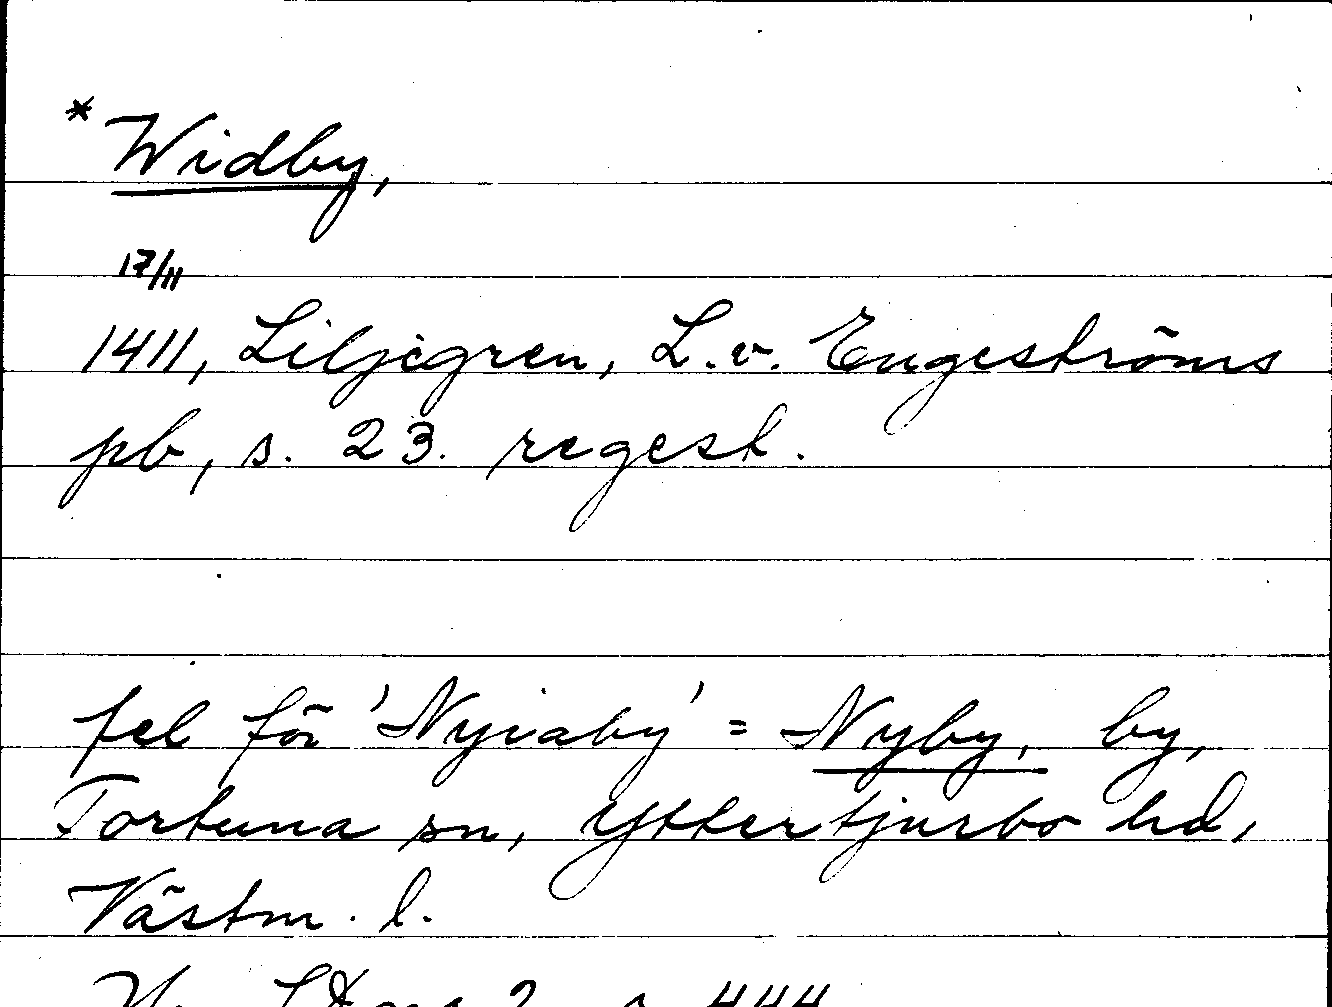 * Widby,
17/11
1411, Liljegren, L.v. Engeströms
pb, s. 23. regest.
fel för 'Nyiaby' = Nyby, by,
Tortuna sn, Yttertjurbo hd,
Västm. l.
2, s. 444